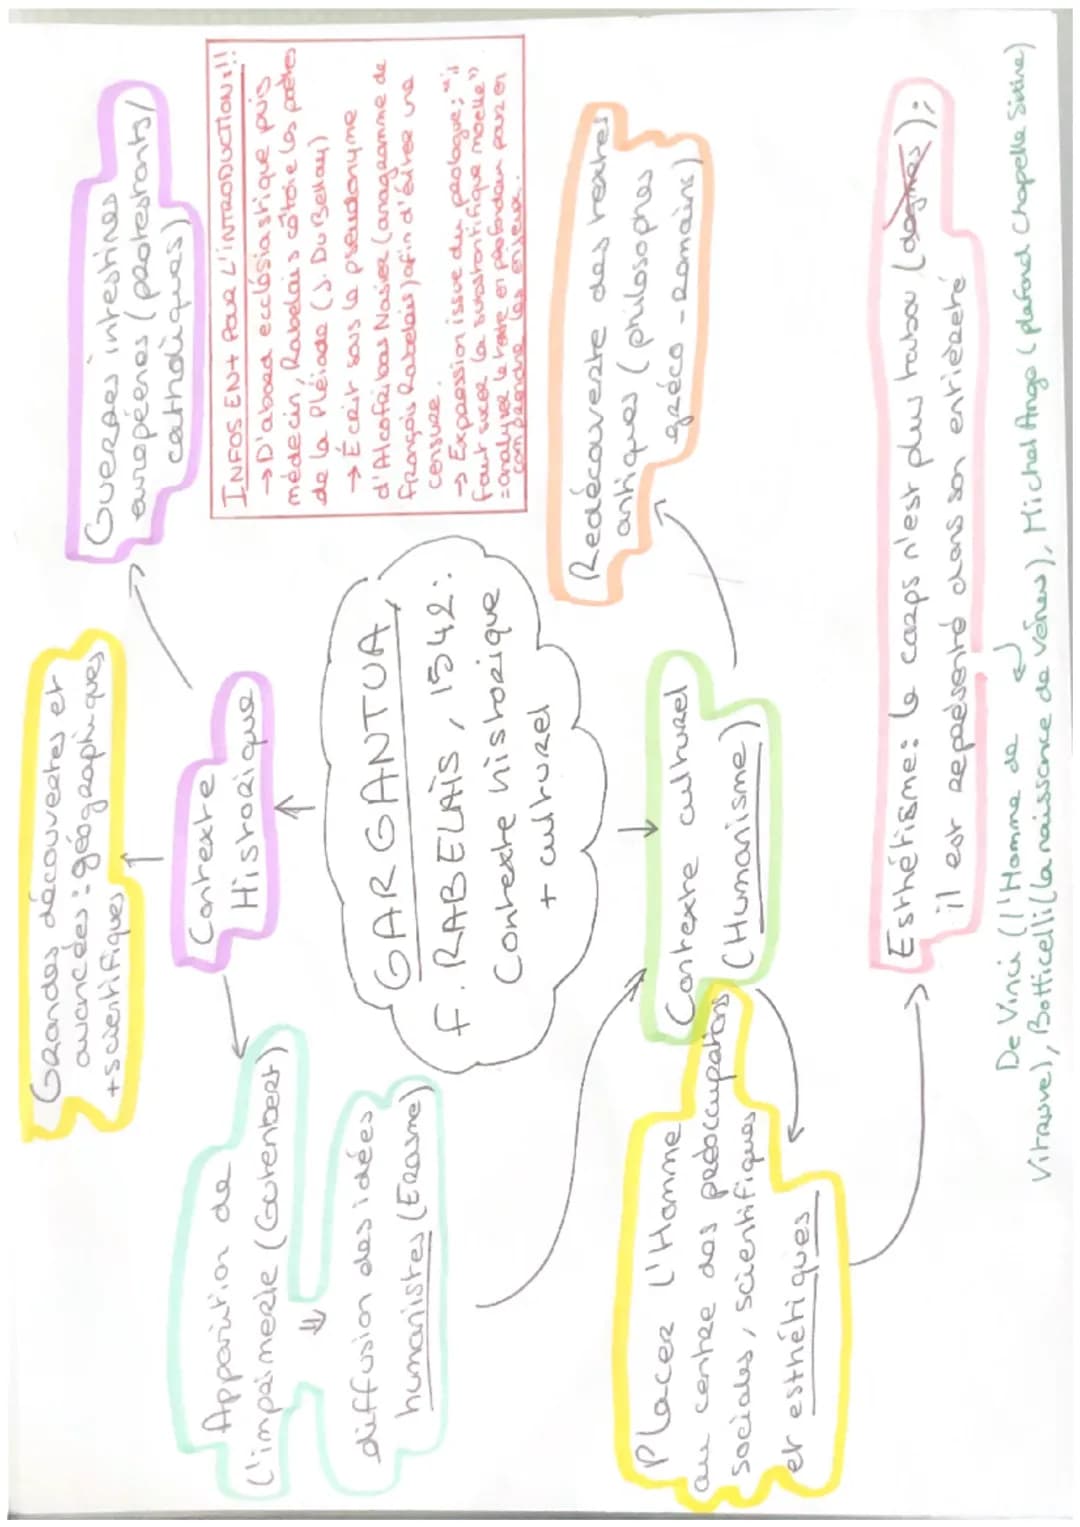 Grandes découvertes et
avancées : géographiques
+ scientifiques
Guerres intestines
européenes (protestants /
catholiques)
Contexte
Historique
Apparition de
l'imprimerie (Gutenbert)
⇓
diffusion des idées
humanistes (Erasme)
INFOS ENT POUR L'INTRODUCTION :!!
→ D'abord ecclésiastique puis
médecin, Rabelais côtoie les poètes
de la Pléiade (J. Du Bellay)
→ Écrit sous le pseudonyme
d'Alcofribas Nasier (anagramme de
François Rabelais) afin d'éviter une
censure.
→ Expression issue du prologue : "il
faut sucer la substantifique moelle"
= analyser le texte en profondeur pour en
comprendre les enjeux.
GARGANTUA,
F. RABELAIS, 1542 :
Contexte historique
+ culturel
Contexte culturel
(Humanisme)
Redécouverte des textes
antiques (philosophes
gréco-romains)
Placer l'Homme
au centre des préoccupations
sociales, scientifiques
et esthétiques
Esthétisme : le corps n'est plus tabou (dogmes) ;
il est représenté dans son entièreté
De Vinci (l'Homme de
Vitruve), Botticelli (la naissance de Vénus), Michel Ange (plafond Chapelle Sixtine)